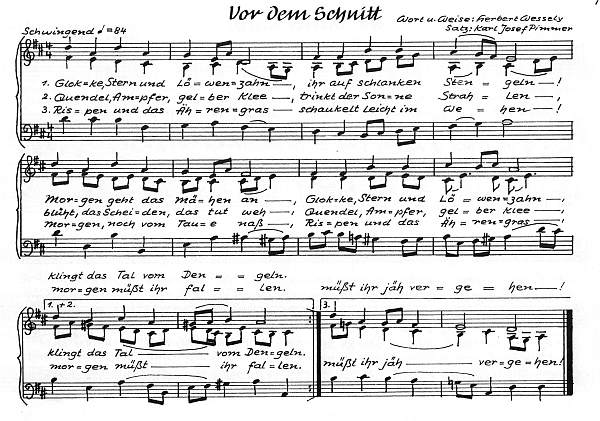 Vor dem Schnitt
Wort u. Weise: Herbert Wessely
Satz: Karl Josef Pimmer
Schwingend ♩=84
1. Glok=ke, Stern und Lö=wen=zahn —, ihr auf schlanken Sten = geln —!
2. Quendel, Am=pfer, gel=ber Klee —, trinkt der Son=ne Strah = len —,
3. Ris=pen und das Äh=ren=gras — schaukelt leicht im We = hen —!
Mor=gen geht das Mä=hen an —, Glok=ke, Stern und Lö = wen=zahn —,
blüht, das Schei=den, das tut weh —, Quendel, Am=pfer, gel=ber klee —,
Mor=gen, noch vom Tau=e naß —, Ris=pen und das Äh=ren=gras —,
klingt das Tal vom Den = = geln.
mor=gen müßt ihr fal = = len. müßt ihr jäh ver = ge = hen!
1.+2. 3.
klingt das Tal — vom Den=geln.
mor=gen müßt — ihr fal = len. müßt ihr jäh — ver=ge=hen!